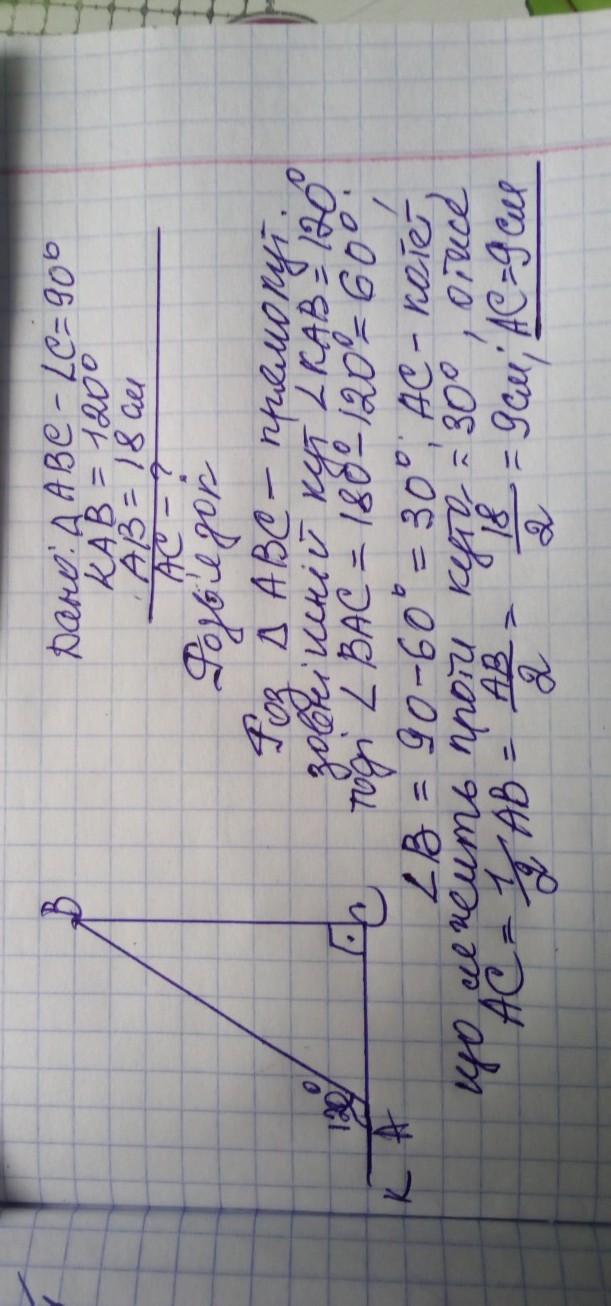 Дано: Δ ABC - ∠C=90°
KAB = 120°
AB = 18 см
AC - ?
Розв'язок
Роз Δ ABC - прямокут.
зовнішній кут ∠KAB = 120°
тоді ∠BAC = 180° - 120° = 60°.
∠B = 90 - 60° = 30°, AC - катет,
що лежить проти кута = 30°, отже
AC = 1/2 AB = AB/2 = 18/2 = 9 см; AC = 9 см
B
120°
K A
C